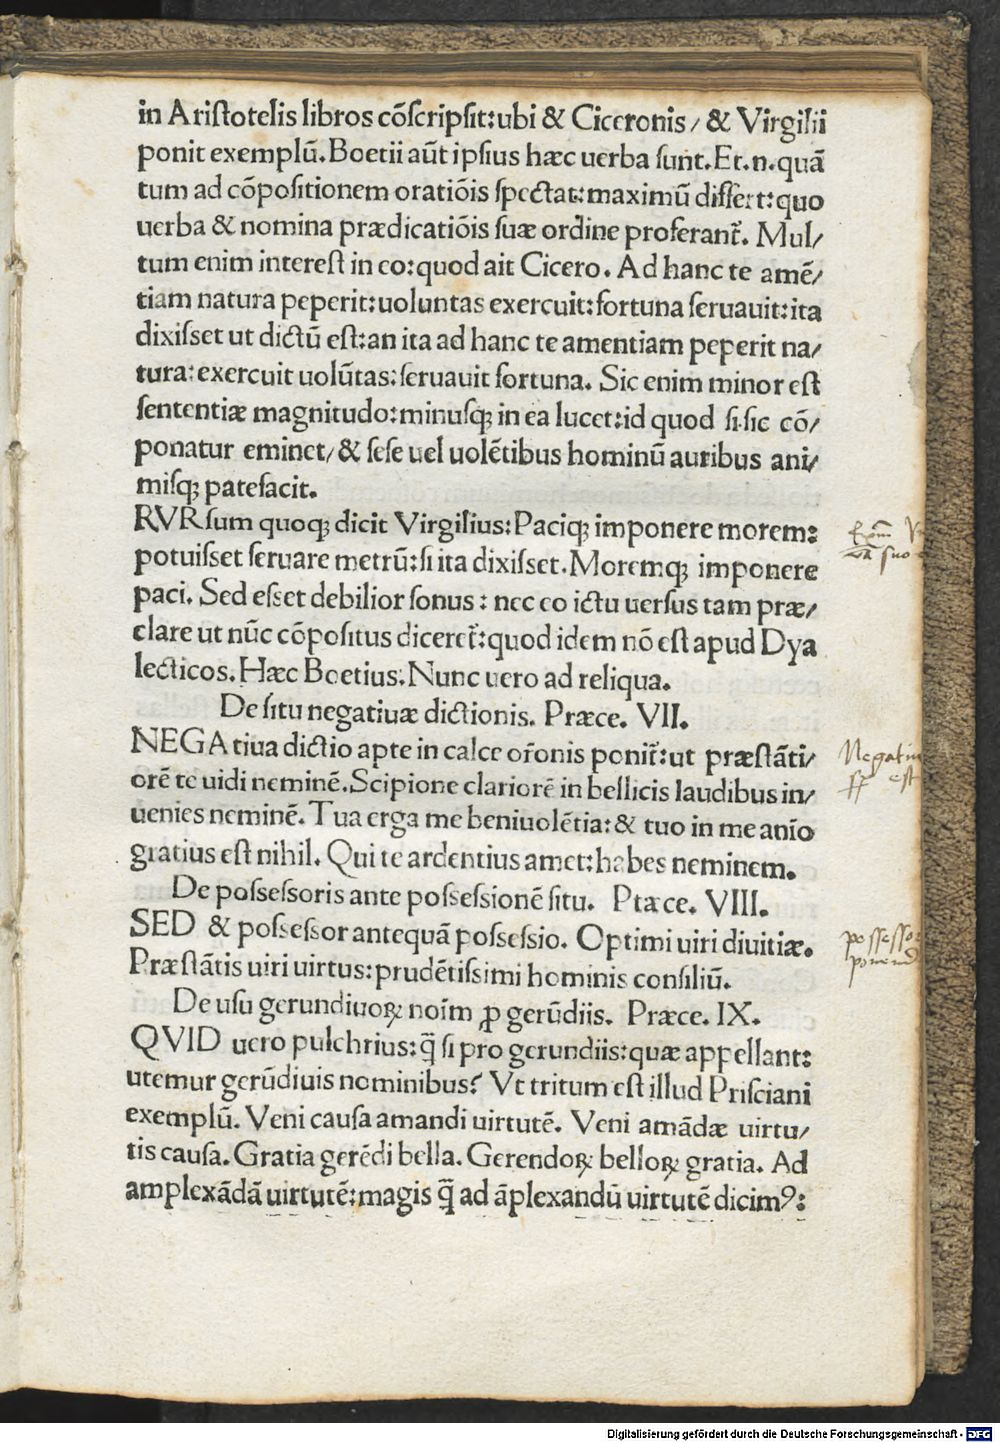 in Ariſtotelis libros cõſcripſit:ubi & Ciceronis/ & Virgilii
ponit exemplũ. Boetii aũt ipſius hæc uerba ſunt. Et.n.quã
tum ad cõpoſitionem oratiõis ſpectat:maximũ differt:quo
uerba & nomina prædicatiõis ſuæ ordine proferant̃. Mul/
tum enim intereſt in eo:quod ait Cicero. Ad hanc te amẽ/
tiam natura peperit:uoluntas exercuit:fortuna ſeruauit:ita
dixiſſet ut dictũ eſt:an ita ad hanc te amentiam peperit na/
tura:exercuit uolũtas:ſeruauit fortuna. Sic enim minor eſt
ſententiæ magnitudo:minuſqꝫ in ea lucet:id quod ſi ſic cõ/
ponatur eminet/& ſeſe uel uolẽtibus hominũ auribus ani/
miſqꝫ patefacit.
RVRſum quoqꝫ dicit Virgilius:Paciqꝫ imponere morem:
potuiſſet ſeruare metrũ:ſi ita dixiſſet. Moremqꝫ imponere
paci. Sed eſſet debilior ſonus: nec eo ictu uerſus tam præ/
clare ut nũc cõpoſitus diceret̃:quod idem nõ eſt apud Dya
lecticos. Hæc Boetius. Nunc uero ad reliqua.
De ſitu negatiuæ dictionis. Præce. VII.
NEGAtiua dictio apte in calce or̃onis ponit̃:ut præſtãti/
orẽ te uidi neminẽ. Scipione clariorẽ in bellicis laudibus in/
uenies neminẽ. Tua erga me beniuolẽtia:& tuo in me anĩo
gratius eſt nihil. Qui te ardentius amet:habes neminem.
De poſſeſſoris ante poſſeſſionẽ ſitu. Ptæce. VIII.
SED & poſſeſſor antequã poſſeſſio. Optimi uiri diuitiæ.
Præſtãtis uiri uirtus:prudẽtiſſimi hominis conſiliũ.
De uſu gerundiuoꝝ noĩm ꝓ gerũdiis. Præce. IX.
QVID uero pulchrius:q̃ ſi pro gerundiis:quæ appellant:
utemur gerũdiuis nominibus? Vt tritum eſt illud Priſciani
exemplũ. Veni cauſa amandi uirtutẽ. Veni amãdæ uirtu/
tis cauſa. Gratia gerẽdi bella. Gerendoꝝ belloꝝ gratia. Ad
amplexãdã uirtutẽ:magis q̃ ad ãplexandũ uirtutẽ dicimꝰ:
Negatiu
est
possesso
ponend
Digitalisierung gefördert durch die Deutsche Forschungsgemeinschaft - DFG